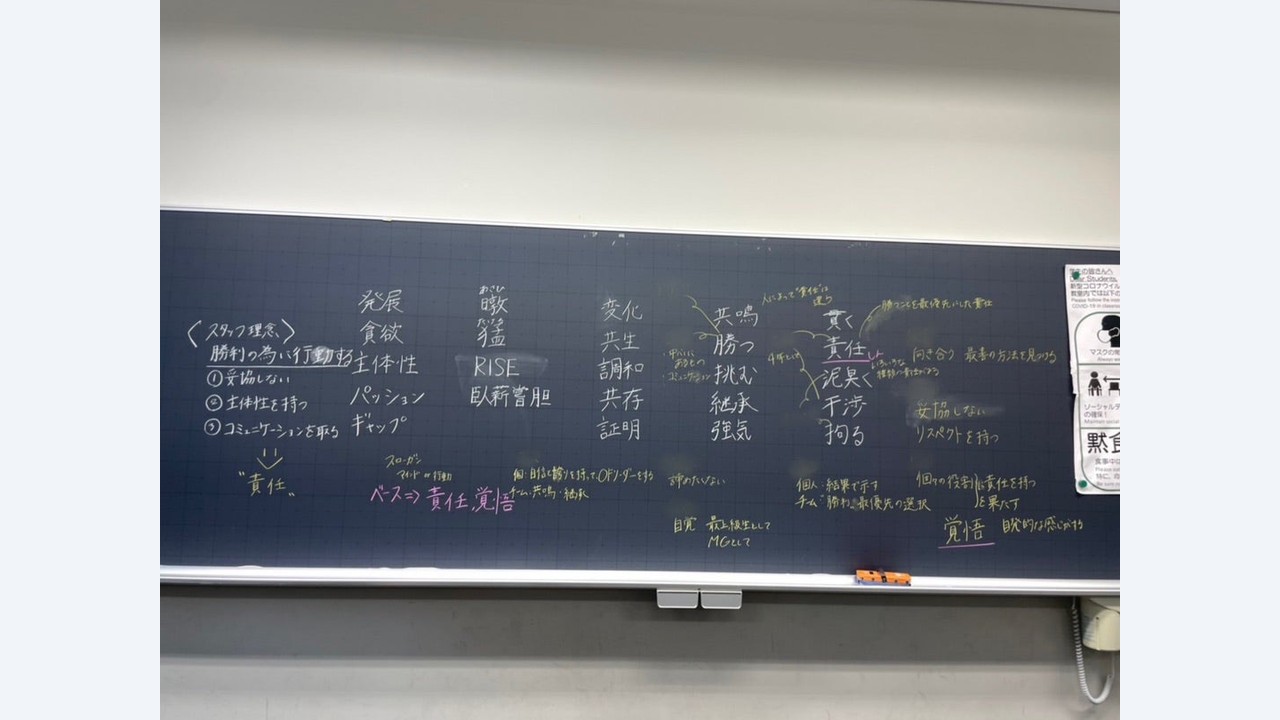 〈スタッフ理念〉
勝利の為に行動する
①妥協しない
②主体性を持つ
③コミュニケーションを取る
"責任"
発展
貪欲
主体性
パッション
ギャップ
スローガン
マインド or 行動
ベース⇒責任、覚悟
暾
猛
RISE
臥薪嘗胆
個:自信と誇りを持って、OFリーダーをする
チーム:共鳴・継承
変化
共生
調和
共存
証明
コミュニケーション
共鳴
勝つ
挑む
継承
強気
人によって"責任"は違う
諦めたくない
自覚 最上級生として
MGとして
4年として
貫く
責任
泥臭く
干渉
拘る
勝つことを最優先にした責任
いろいろな
向き合う 最善の方法を見つける
妥協しない
リスペクトを持つ
個人:結果で示す
チーム:勝利最優先の選択
個々の役割に責任を持つ
を果たす
覚悟 自発的な感じがする
学生の皆さんへ
Dear Students,
新型コロナウイル
教室内では以下の
Please follow the
COVID-19 in
マスクの
ソーシャルデ
の確保!
Maintain social
黙食
食事中は
特に、